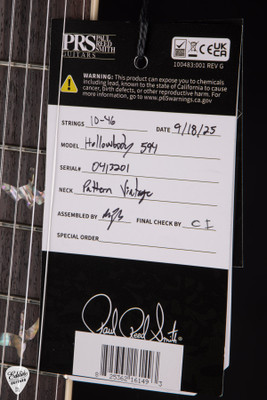 PRS PAUL REED SMITH
GUITARS
CE UK CA
100483:001 REV G
WARNING: This product can expose you to chemicals
including lead, known to the State of California to cause
cancer, birth defects, or other reproductive harm.
For more information go to www.P65warnings.ca.gov
STRINGS 10-46 DATE 9/18/25
MODEL Hollowbody 594
SERIAL# 0413201
NECK Pattern Vintage
ASSEMBLED BY FINAL CHECK BY CI
SPECIAL ORDER
Paul Reed Smith
8 25362 16149 3
Eddie's
GUITARS